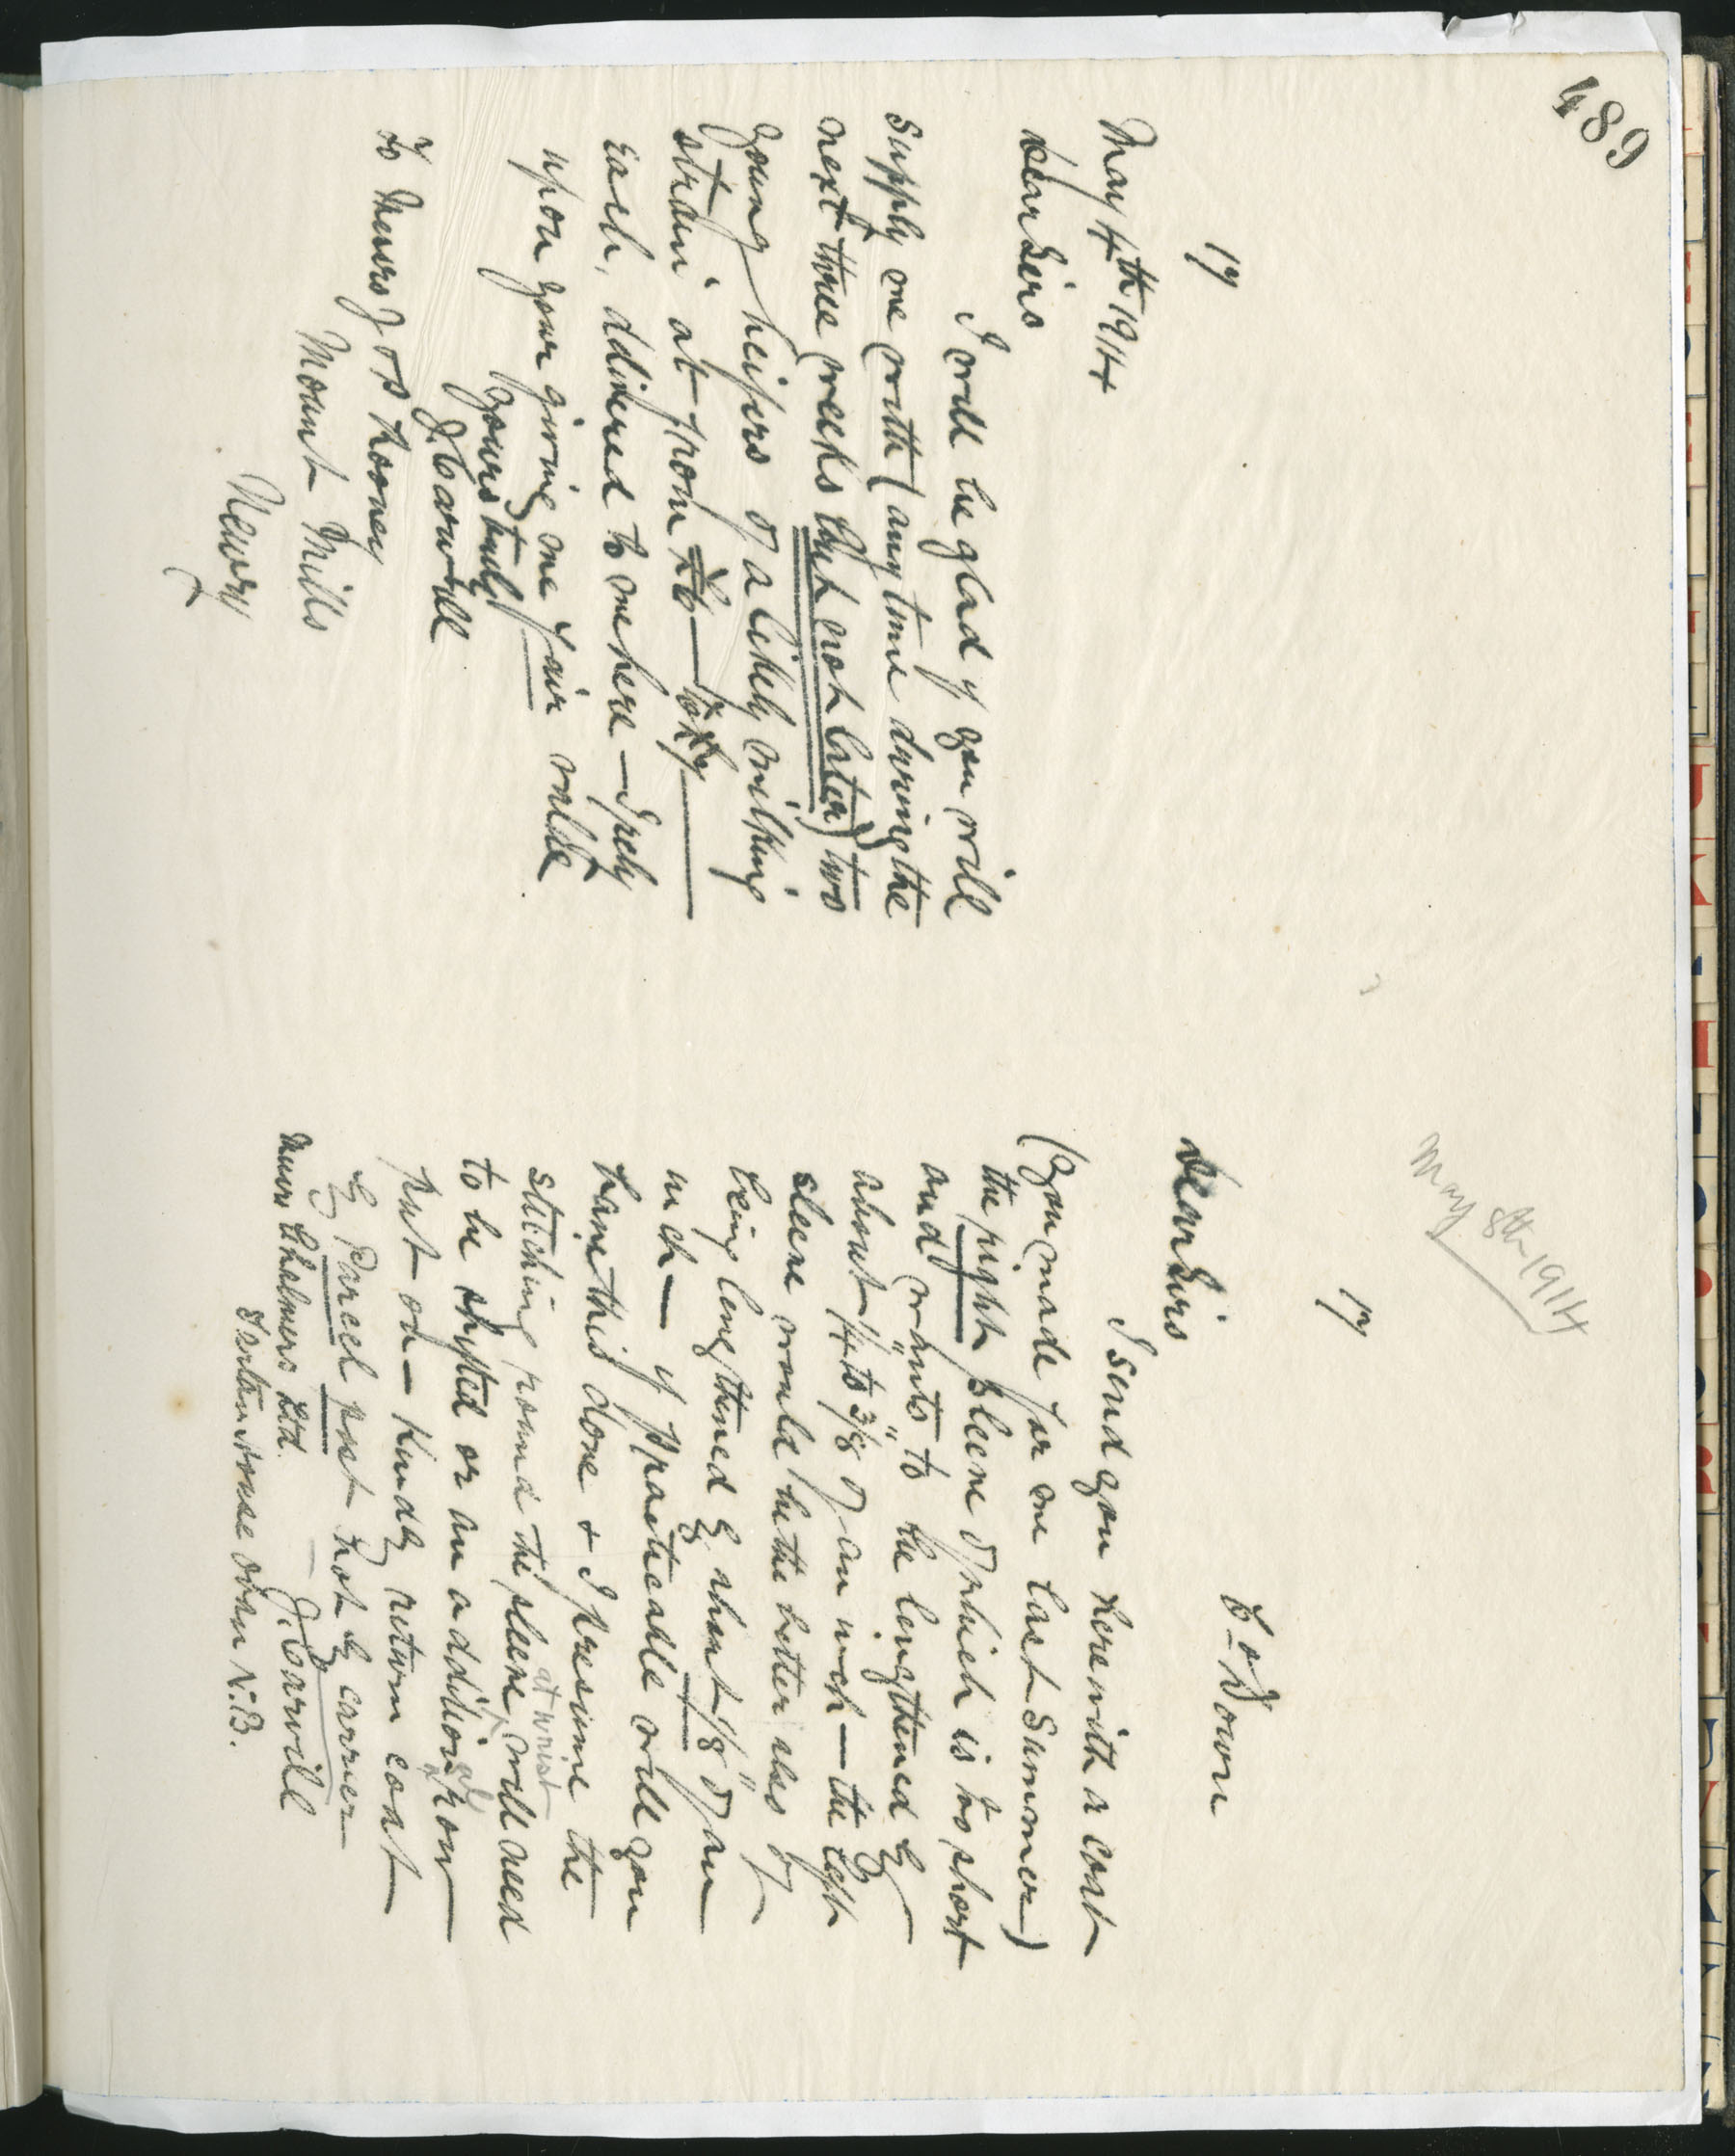 489
17
May 4th 1914
Dear Sirs
I will be glad if you will
supply me with (any time during the
next three weeks but not later) two
young heifers of a likely milking
strain at from
each, dilivered to me here — I rely
upon your giving me fair value
Yours truly
J. Carvill
To Messrs J & P Rooney
Mount Mills
Newry
May 8th 1914
17
Co Down
Dear Sirs
I send you herewith a coat
(you made for me last Summer)
the right sleeve of which is too short
and wants to be lengthened by
about 1/4" to 3/8" of an inch — the left
sleeve would be the better also of
being lengthened by about 1/8" of an
inch — if practicable will you
have this done & I presume the
stitching round the sleeve at wrist will need
to be shifted or an additional row
put on — Kindly return coat
by Parcel post not by carrier
J. Carvill
Messrs Chalmers Ltd.
Oban N.B.